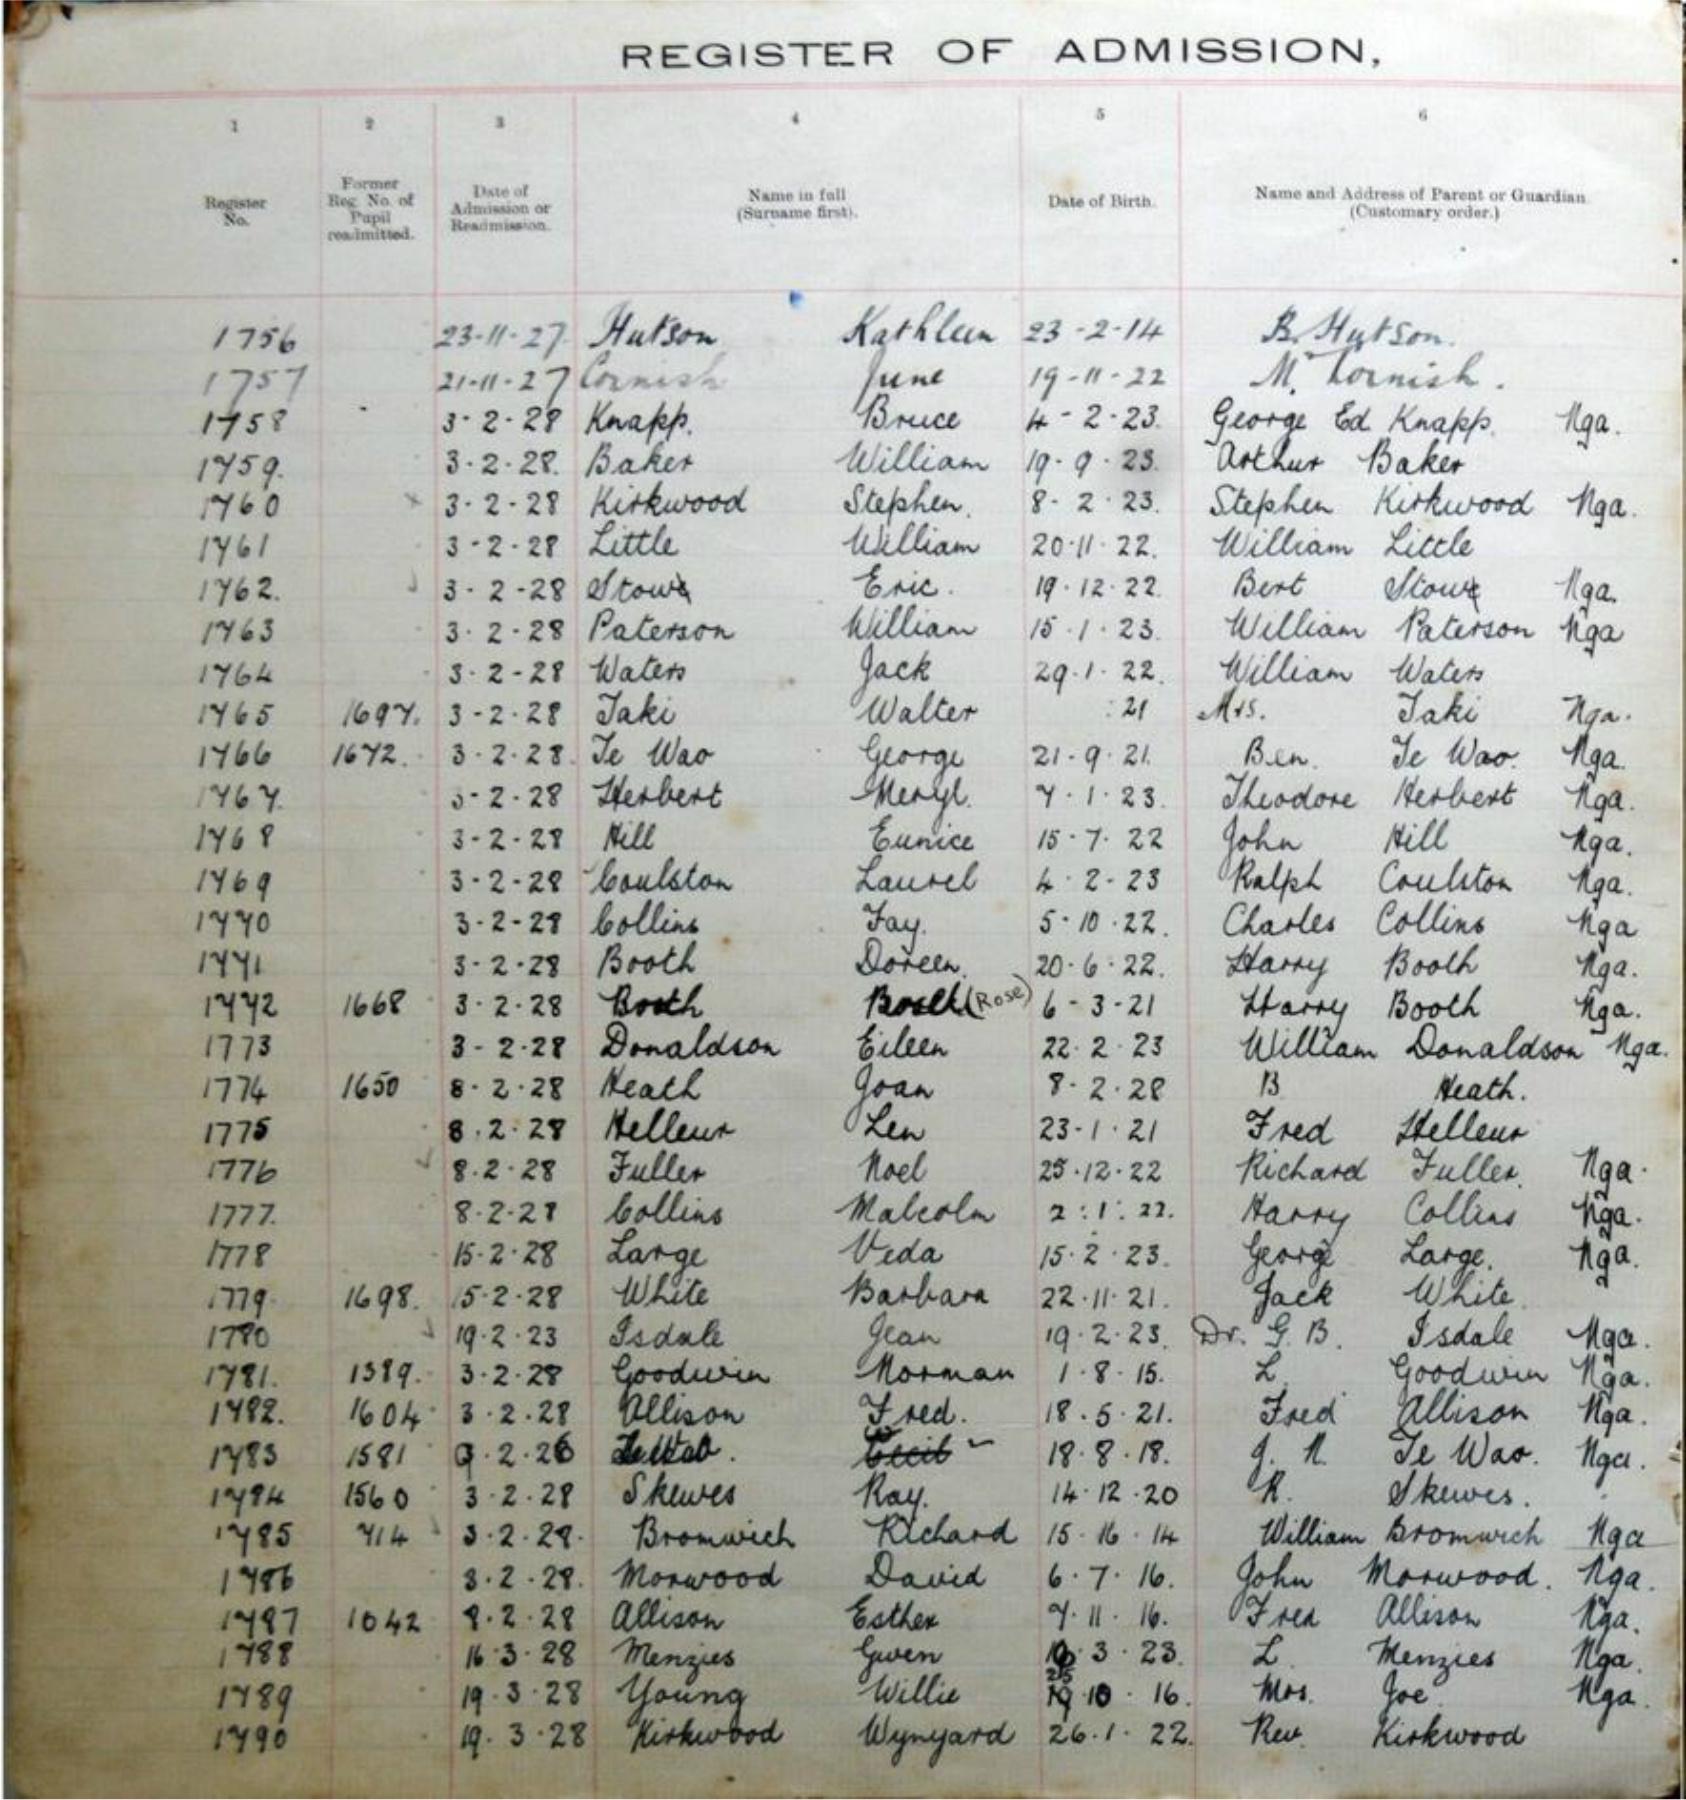 REGISTER OF ADMISSION,
1 2 3 4 5 6
Register No. Former Reg. No. of Pupil readmitted. Date of Admission or Readmission. Name in full (Surname first). Date of Birth. Name and Address of Parent or Guardian (Customary order.)
1756 23-11-27 Hutson Kathleen 23-2-14 B. Hutson.
1757 21-11-27 Cornish June 19-11-22 M. Cornish.
1758 3-2-28 Knapp. Bruce 4-2-23. George Ed Knapp. Nga.
1759. 3-2-28. Baker William 19-9-23. Arthur Baker
1760 3-2-28 Kirkwood Stephen. 8-2-23. Stephen Kirkwood Nga.
1761 3-2-28 Little William 20-11-22. William Little
1762. 3-2-28 Stowe Eric. 19.12.22. Bert Stowe Nga.
1763 3-2-28 Paterson William 15.1.23. William Paterson Nga
1764 3-2-28 Waters Jack 29.1.22. William Waters
1765 1697. 3-2-28 Taki Walter 21 Mrs. Taki Nga.
1766 1672. 3-2-28. Te Wao George 21-9-21. Ben. Te Wao. Nga.
1767. 3-2-28 Herbert Meryl. 7.1.23. Theodore Herbert Nga.
1768 3-2-28 Hill Eunice 15-7-22 John Hill Nga.
1769 3-2-28 Coulston Laurel 4-2-23 Ralph Coulston Nga.
1770 3-2-28 Collins Fay. 5-10-22. Charles Collins Nga
1771 3-2-28 Booth Doreen. 20-6-22. Harry Booth Nga.
1772 1668 3-2-28 Booth (Rose) 6-3-21 Harry Booth Nga.
1773 3-2-28 Donaldson Eileen 22.2.23 William Donaldson Nga.
1774 1650 8-2-28 Heath Joan 8-2-28 B Heath.
1775 8.2.28 Helleur Len 23-1-21 Fred Helleur
1776 8.2.28 Fuller Noel 25.12.22 Richard Fuller. Nga.
1777. 8-2-28 Collins Malcolm 2.1.22. Harry Collins Nga.
1778 15-2-28 Large Veda 15.2.23. George Large. Nga.
1779. 1698. 15-2-28 White Barbara 22.11.21. Jack White.
1780 19-2-23 Isdale Jean 19.2.23. Dr. G. B. Isdale Nga.
1781. 1389. 3-2-28 Goodwin Norman 1.8.15. L. Goodwin Nga.
1782. 1604 3.2.28 Allison Fred. 18.5.21. Fred Allison Nga.
1783 1581 .2.28 Te Wao. Cecil 18.8.18. J. N. Te Wao. Nga.
1784 1560 3-2-28 Skewes Ray. 14.12.20 R. Skewes.
1785 714 3.2.28. Bromwich Richard 15.16.14 William Bromwich Nga
1786 3.2.28. Morwood David 6.7.16. John Morwood. Nga.
1787 1042 8.2.28 Allison Esther 7.11.16. Fred Allison Nga.
1788 16.3.28 Menzies Gwen 3.23. L. Menzies Nga.
1789 19.3.28 Young Willie 10.16. Mrs. Joe Nga.
1790 19.3.28 Kirkwood Wynyard 26.1.22. Rev. Kirkwood